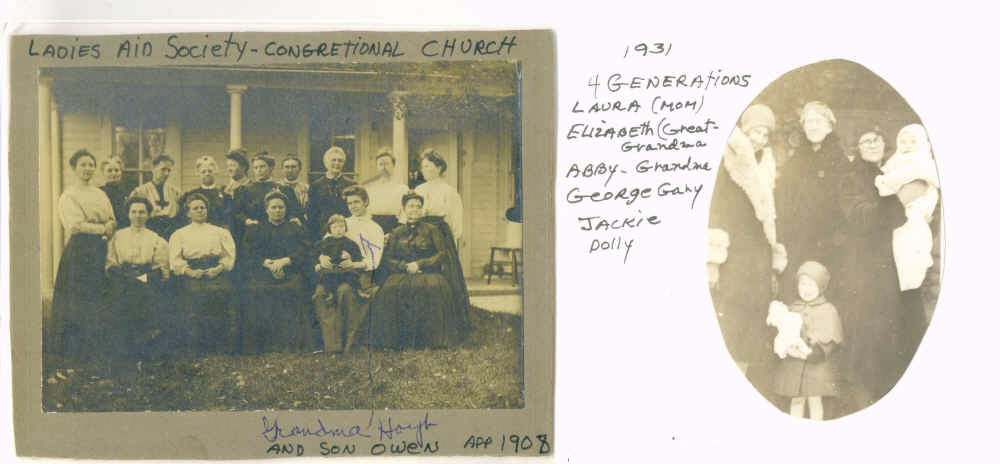 LADIES AID Society - CONGRETIONAL CHURCH
Grandma Hoyh
AND SON OWEN APP 1908
1931
4 GENERAtIONS
LAURA (MOM)
ELIZABETH (Great-
Grandma
ABBY - Grandma
George Gary
JACKIE
Dolly